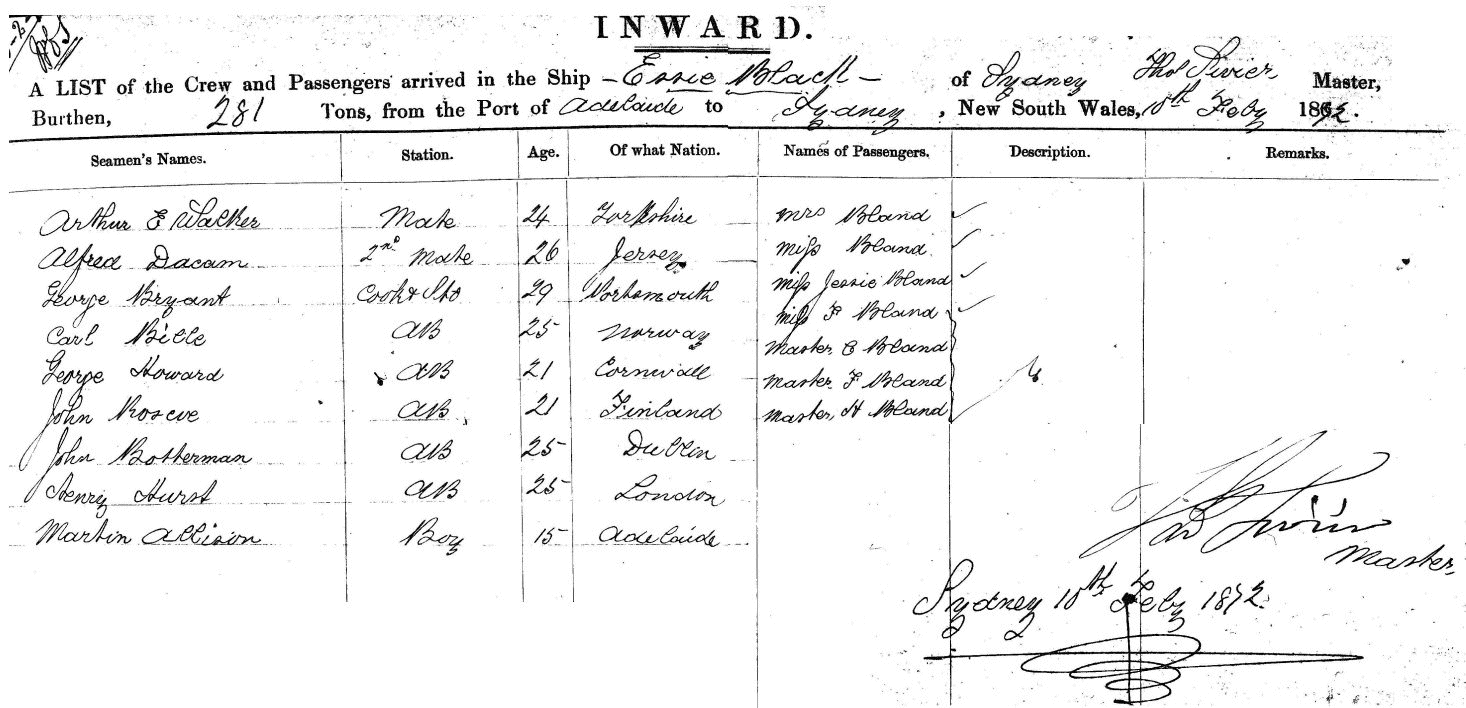 INWARD.
A LIST of the Crew and Passengers arrived in the Ship - Essie Black - of Sydney Thos Master,
Burthen, 281 Tons, from the Port of Adelaide to Sydney, New South Wales, 10th Feby 1872.
Seamen's Names. Station. Age. Of what Nation. Names of Passengers. Description. Remarks.
Arthur E Walker Mate 24 Yorkshire Mrs Bland
Alfred Dacam 2nd Mate 26 Jersey Miss Bland
George Bryant Cook & Std 29 Portsmouth Miss Jessie Bland
Carl Bille AB 25 Norway Miss F Bland
George Howard AB 21 Cornwall Master E Bland
John Roscoe AB 21 Finland Master F Bland
John Botterman AB 25 Dublin Master H Bland
Henry Hurst AB 25 London
Martin Allison Boy 15 Adelaide
Master
Sydney 10th Feby 1872.